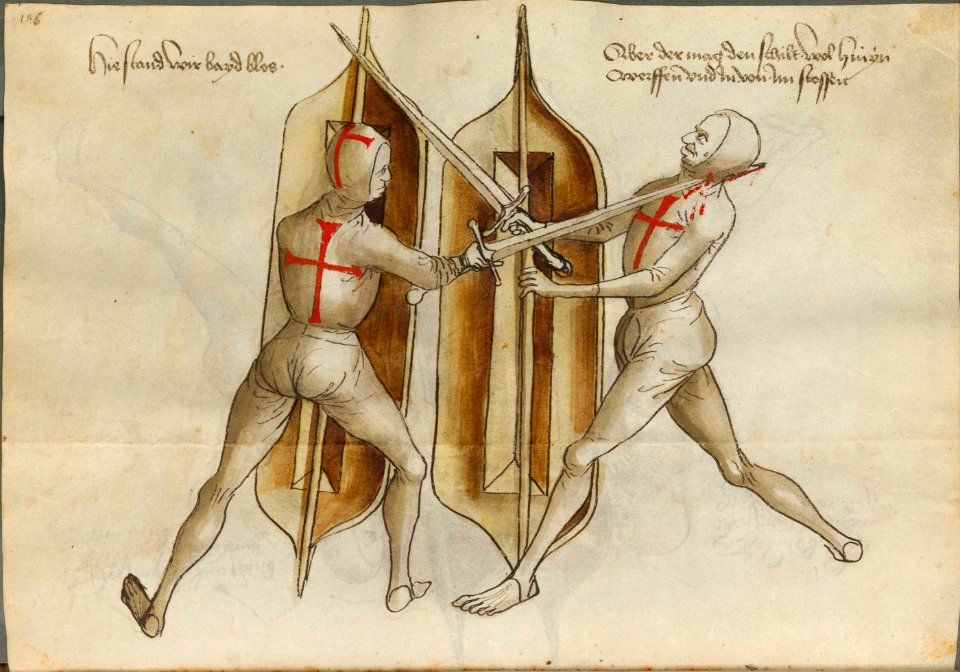 116
Hie stand wir bayd blos.
Ober der mag den schilt wol hin
werffen vnd in von im stossen